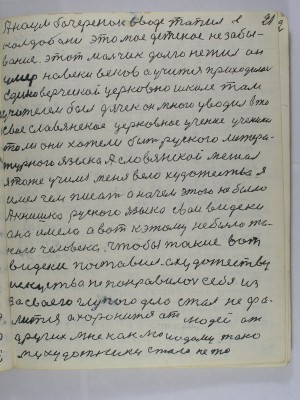 Анацм бочеренок вводе топил в 21
колдобани это мое детское не забы-
вание. этот малчик долго не жил он
умер навеки веков а учится приходилос
единоверческой церковно школе там
учителем был дячек он много уводил в то
свое славянское церковное учение ученики
то м они хотели быт руского литера-
турного языка А словянской мешал
я тоже учился меня вело художество я
имел чем писат а начем этого не было
Акнишка руского языка свои видеки
оно имело а вот кэтому небыло та-
кого человека, чтобы такие вот
видеки поставил. оихудожеству
искуства не поправилос себя из
засвоего глупого дело стал не фа-
литця охоронится от людей от
других мне как молодому тако
му художнику стало не то